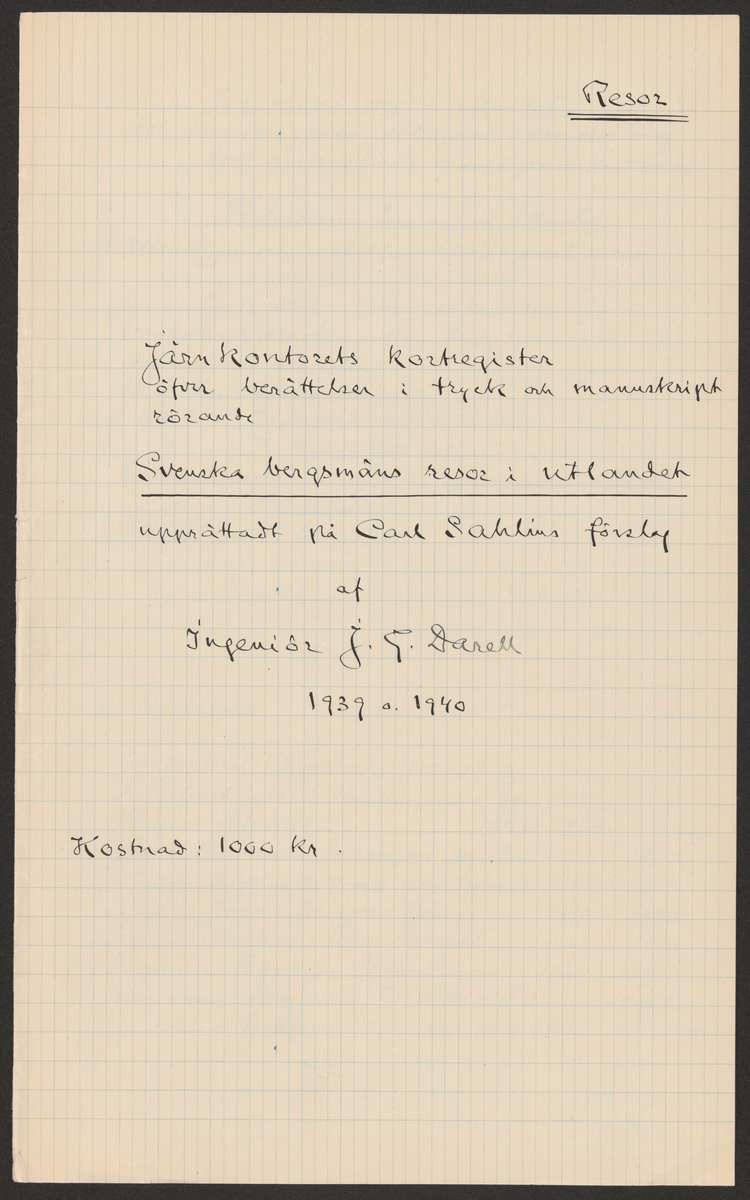 Resor
Järnkontorets kortregister
öfver berättelser i tryck och manuskript
rörande
Svenska bergsmäns resor i utlandet
upprättadt på Carl Sahlins förslag
af
Ingeniör J. G. Darell
1939 o. 1940
Kostnad: 1000 kr.